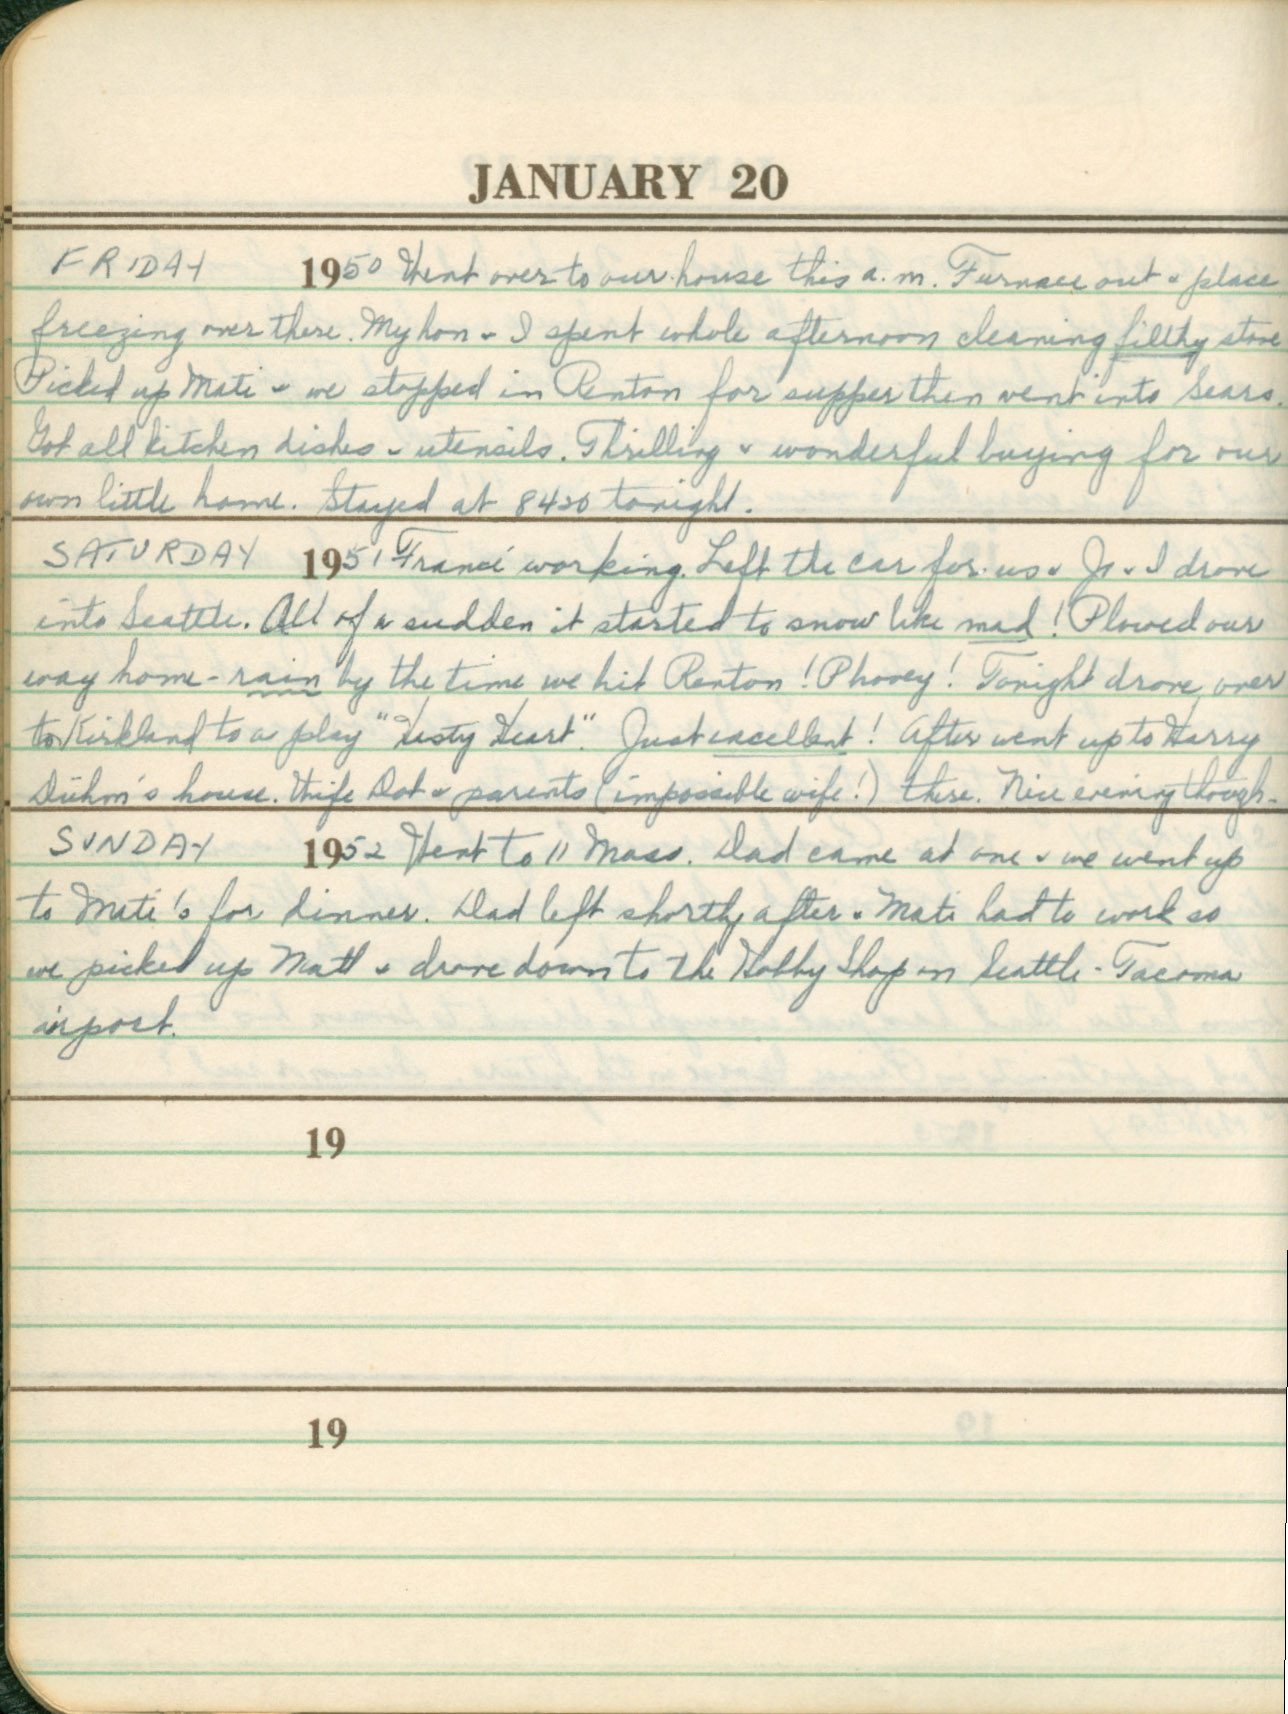 JANUARY 20
FRIDAY 1950 Went over to our house this a.m. Furnace out & place
freezing over there. My hon & I spent whole afternoon cleaning filthy stove
Picked up Mati & we stopped in Renton for supper then went into Sears.
Got all kitchen dishes & utensils. Thrilling & wonderful buying for our
own little home. Stayed at 8420 tonight.
SATURDAY 1951 Franci working. Left the car for us & Jo & I drove
into Seattle. All of a sudden it started to snow like mad! Plowed our
way home - rain by the time we hit Renton! Phooey! Tonight drove over
to Kirkland to a play "Hasty Heart". Just excellent! After went up to Harry
house. Wife Dot & parents (impossible wife!) there. Nice evening though.
SUNDAY 1952 Went to 11 Mass. Dad came at one & we went up
to Mati's for dinner. Dad left shortly after & Mati had to work so
we picked up Matt & drove down to the Hobby Shop on Seattle-Tacoma
airport.
19
19